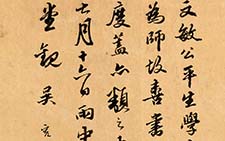 文敏公平生學
為師故喜書
度蓋亦類之
七月十六日雨中
堂觀吳